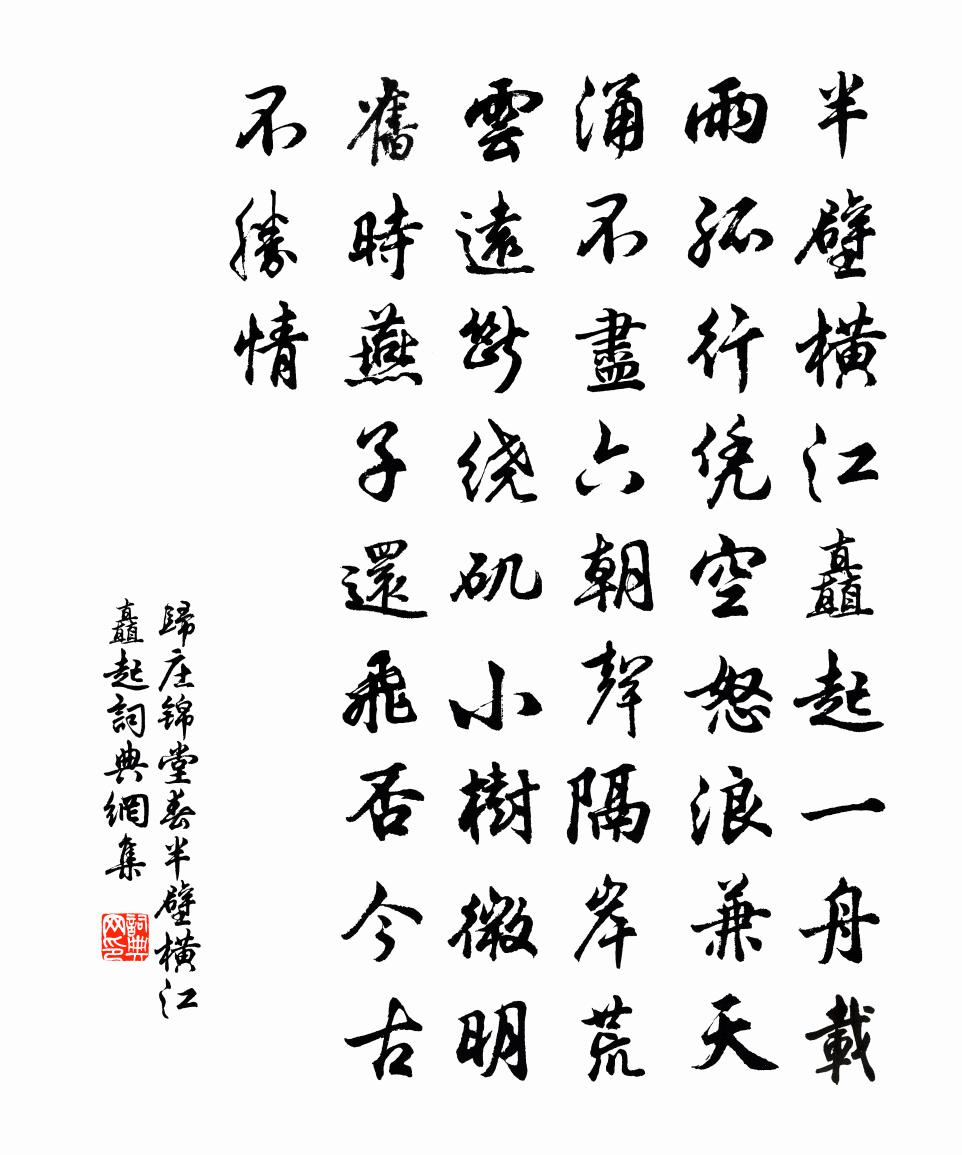 半壁橫江矗起一舟載
雨孤行凭空怒浪兼天
涌不盡六朝聲隔岸荒
雲遠斷绕矶小樹微明
舊時燕子還飛否今古
不勝情
歸庄锦堂春半壁橫江
矗起詞典網集
詞典网印